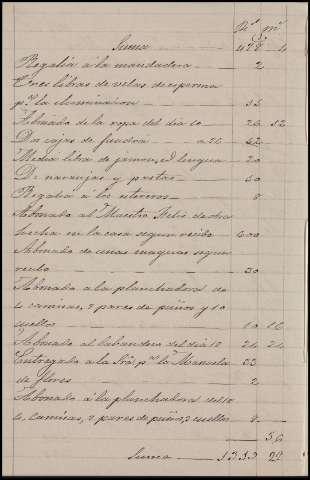 Rs. ms.
Suma — 428 — 4
Regalia á la mandadera — 2
Tres libras de velas de esperma
pa. la iluminacion — 15
Abonado de la ropa del dia 10 — 26 12
Dos cajas de — a 26 52
Media libra de jamon, y lengua — 20
De naranjas y postres — 60
Regalia á los — 8
Abonado al Maestro Felis de obra
hecha en la casa segun recibo — 600
Abonado de unas enaguas segun
recibo — 30
Abonado á la planchadora de
6 camisas, 2 pares de puños y 10
cuellos — 10 16
Abonado al labandero del dia 10 24 24
Entregado a la Sra. pa. la Manuela 33
de flores — 2
Abonado á la planchadora del 10
6 camisas, 2 pares de puños, 2 cuellos 8 —
— 56
Suma — 1353 22